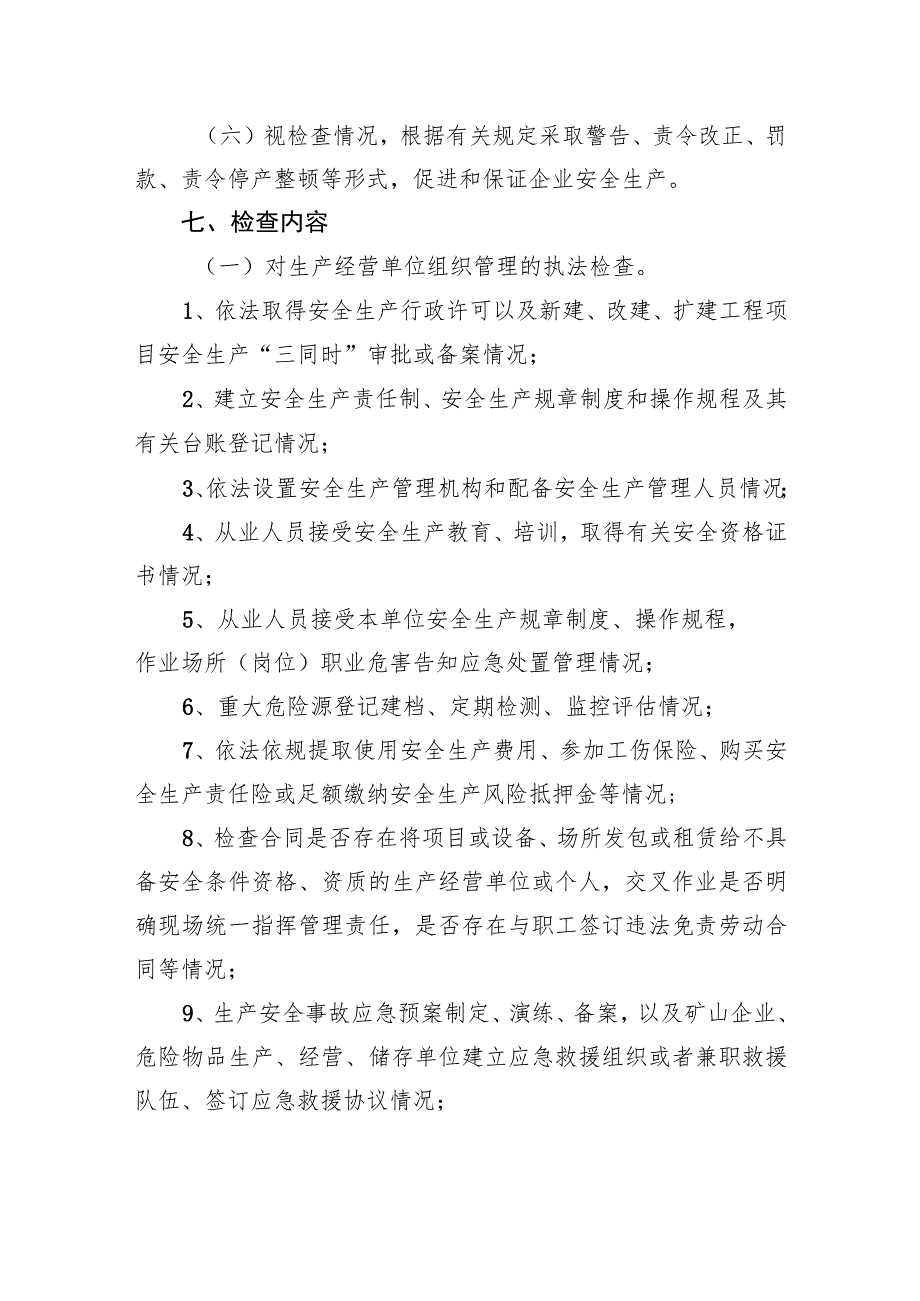 （六）视检查情况，根据有关规定采取警告、责令改正、罚
款、责令停产整顿等形式，促进和保证企业安全生产。
七、检查内容
（一）对生产经营单位组织管理的执法检查。
1、依法取得安全生产行政许可以及新建、改建、扩建工程项
目安全生产“三同时”审批或备案情况；
2、建立安全生产责任制、安全生产规章制度和操作规程及其
有关台账登记情况；
3、依法设置安全生产管理机构和配备安全生产管理人员情况；
4、从业人员接受安全生产教育、培训，取得有关安全资格证
书情况；
5、从业人员接受本单位安全生产规章制度、操作规程，
作业场所（岗位）职业危害告知应急处置管理情况；
6、重大危险源登记建档、定期检测、监控评估情况；
7、依法依规提取使用安全生产费用、参加工伤保险、购买安
全生产责任险或足额缴纳安全生产风险抵押金等情况；
8、检查合同是否存在将项目或设备、场所发包或租赁给不具
备安全条件资格、资质的生产经营单位或个人，交叉作业是否明
确现场统一指挥管理责任，是否存在与职工签订违法免责劳动合
同等情况；
9、生产安全事故应急预案制定、演练、备案，以及矿山企业、
危险物品生产、经营、储存单位建立应急救援组织或者兼职救援
队伍、签订应急救援协议情况；